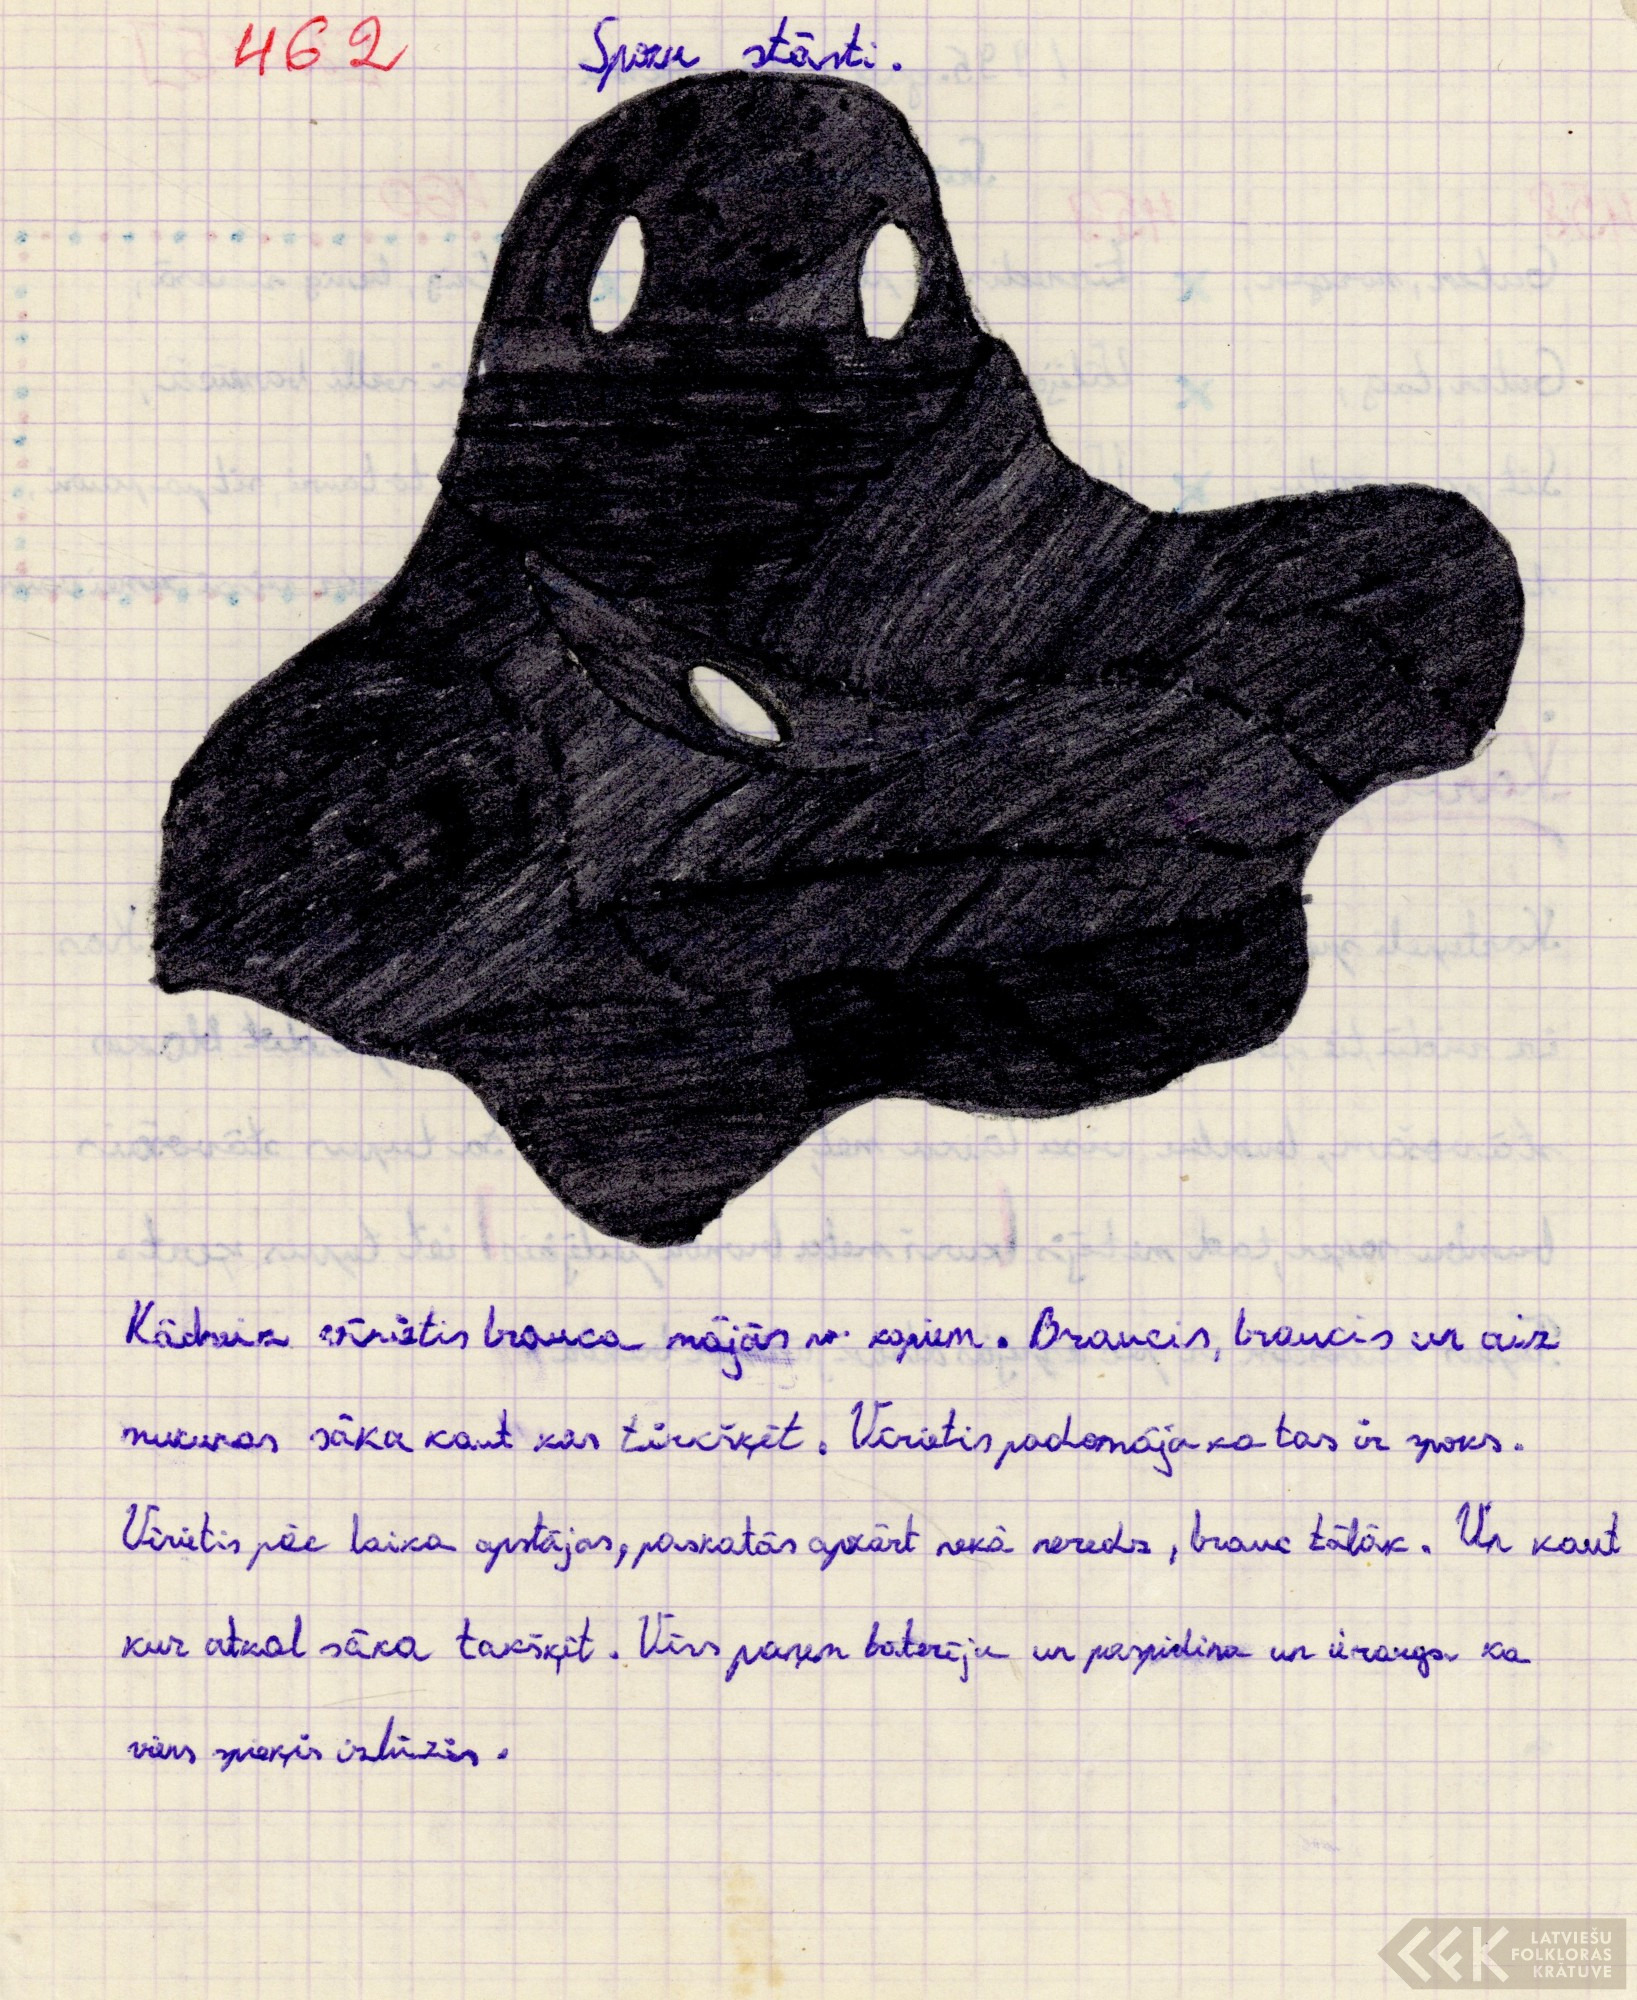 462
Spoku stāsti.
Kādreiz vīrietis brauca mājās no kapiem. Braucis, braucis un aiz
muguras sāka kaut kas tirkšķēt. Vīrietis padomāja ka tas ir spoks.
Vīrietis pēc laika apstājas, paskatās apkārt nekā neredz, brauc tālāk. Un kaut
kur atkal sāka takšķēt. Vīrs paņem bateriju un paspīdina un ierauga ka
viens spieķis izlūzis.
LATVIEŠU
FOLKLORAS
KRĀTUVE